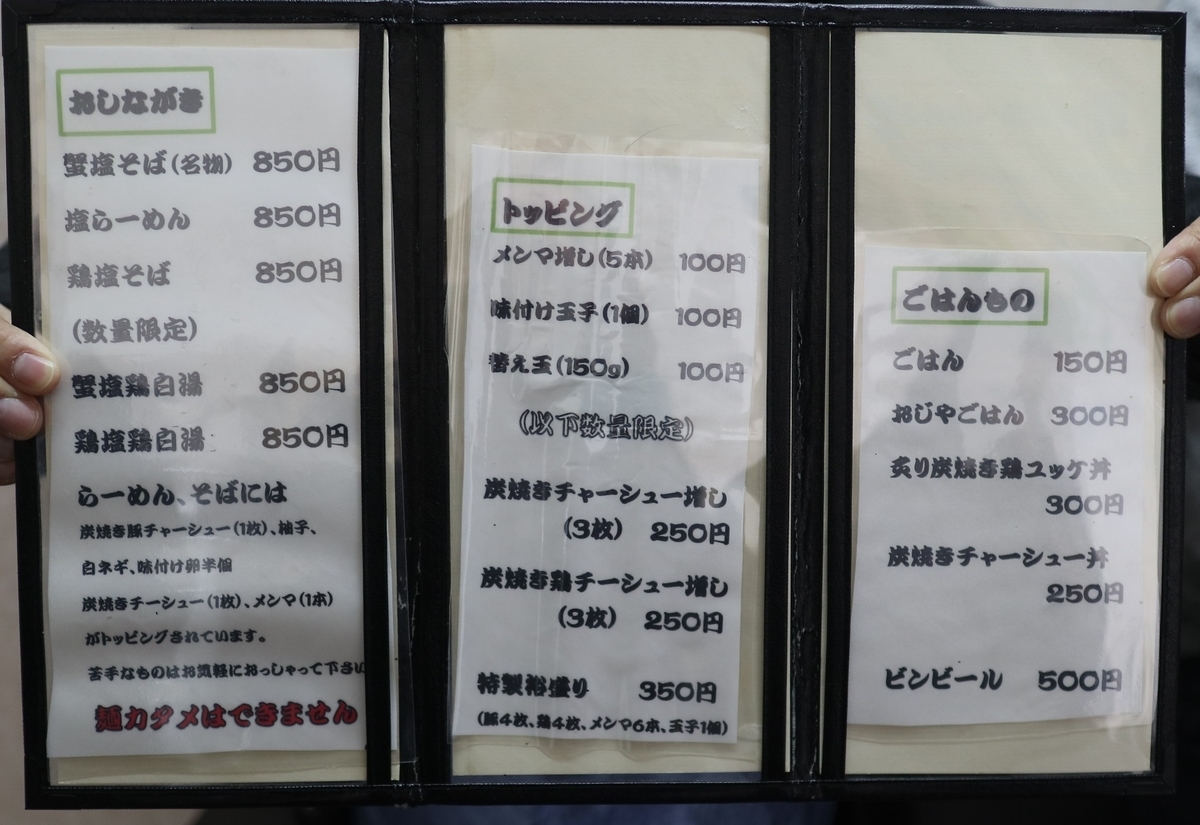 おしながき
蟹塩そば(名物) 850円
塩らーめん 850円
鶏塩そば 850円
(数量限定)
蟹塩鶏白湯 850円
鶏塩鶏白湯 850円
らーめん、そばには
炭焼き豚チャーシュー(1枚)、柚子、
白ネギ、味付け卵半個
炭焼きチーシュー(1枚)、メンマ(1本)
がトッピングされています。
苦手なものはお気軽におっしゃって下さい
麺カタメはできません
トッピング
メンマ増し(5本) 100円
味付け玉子(1個) 100円
替え玉(150g) 100円
(以下数量限定)
炭焼きチャーシュー増し
(3枚) 250円
炭焼き鶏チーシュー増し
(3枚) 250円
特製裕盛り 350円
(豚4枚、鶏4枚、メンマ6本、玉子1個)
ごはんもの
ごはん 150円
おじやごはん 300円
炙り炭焼き鶏ユッケ丼
300円
炭焼きチャーシュー丼
250円
ビンビール 500円